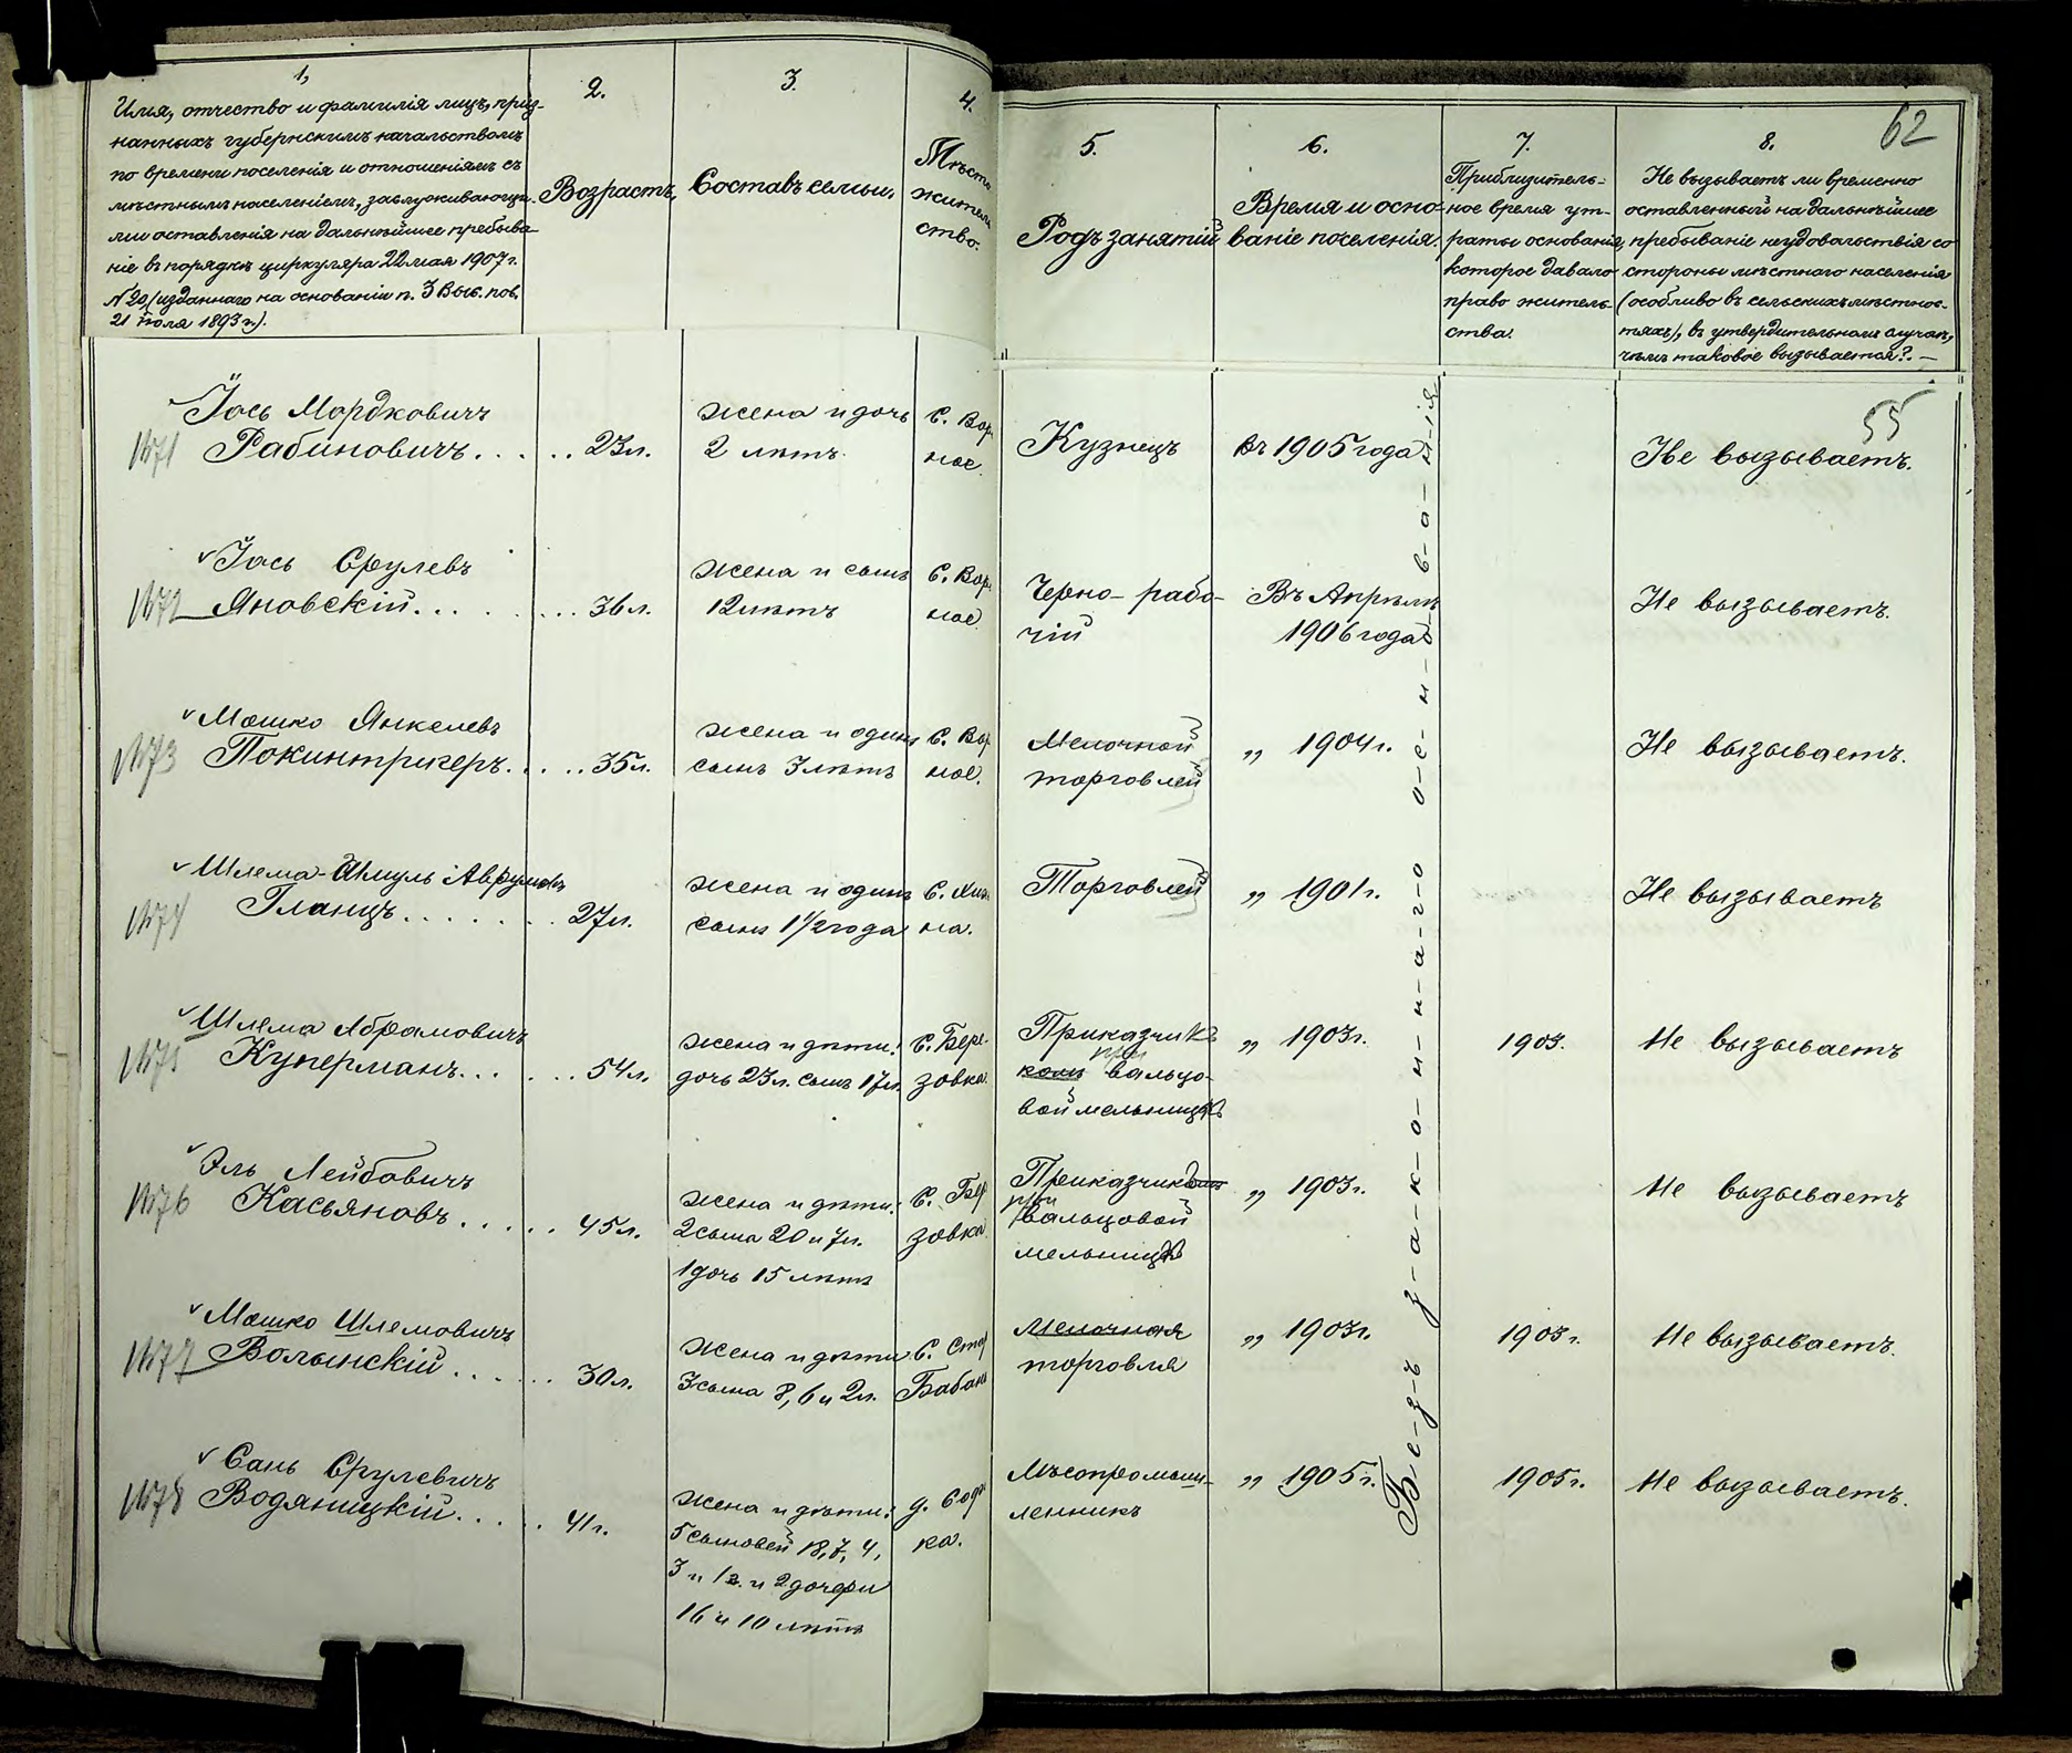 1,
Имя, отчество и фамилія лицъ, приз-
нанныхъ губернскимъ начальствомъ
по времени поселенія и отношеніямъ съ
мѣстнымъ населеніемъ, заслуживающи-
ми оставленія на дальнѣйшее пребыва-
ніе въ порядкѣ циркуляра 22 мая 1907 г.
№ 20, (изданнаго на основаніи п. 3 Выс. пов.
21 Іюля 1893 г.).
2.
Возрастъ.
3.
Составъ семьи.
4.
Мѣсто
житель
ство.
5.
Родъ занятій
6.
Время и осно-
ваніе поселенія.
7.
Приблизитель-
ное время ут-
раты основанія,
которое давало
право житель-
ства.
8.
Не вызываетъ ли временно
оставленный на дальнѣйшее
пребываніе неудовольствія со
стороны мѣстнаго населенія
(особливо въ сельскихъ мѣстнос-
тяхъ), въ утвердительномъ случаѣ,
чѣмъ таковое вызывается?. —
62
55
Іось Мордковичъ
№71 Рабиновичъ. . . . . . 23л.
жена и дочь
2 лѣтъ.
С. Вор
ное.
Кузнецъ
въ 1905 года
Не вызываетъ.
Іось Срулевъ
№72 Яновскій. . . . . . . 36л.
жена и сынъ
12 лѣтъ
С. Вор
ное.
Черно-рабо-
чій
Въ Апрѣлѣ
1906 года
Не вызываетъ.
Мошко Янкелевъ
№73 Покинтригеръ. . . . . 35л.
жена и одинъ
сынъ 3 лѣтъ
С. Вор
ное.
Мелочной
торговлей
„ 1904 г.
Не вызываетъ.
Шлема-Шмуль Аврумовъ
№74 Гланцъ. . . . . . . . 27л.
жена и одинъ
сынъ 1 1/2 года
на.
Торговлей
„ 1901 г.
Не вызываетъ
Шлема Абрамовичъ
№75 Куперманъ. . . . . . 54л.
жена и дѣти:
дочь 23л. сынъ 17л.
С. Бере-
зовка.
Приказчикъ
при
вальцо-
вой мельницѣ
„ 1903г.
1903.
Не вызываетъ
Эль Лейбовичъ
№76 Касьяновъ. . . . . . 45л.
жена и дѣти:
2 сына 20 и 7л.
1 дочь 15 лѣтъ
С. Бер
зовка.
Приказчикъ
при
вальцовой
мельницѣ
„ 1903г.
Не вызываетъ
Мошко Шлемовичъ
№77 Волынскій. . . . . . 30л.
Жена и дѣти
3 сына 8, 6 и 2л.
С. Стар
Бабан
Мелочная
торговля
„ 1903г.
1903 г.
Не вызываетъ.
Сань Срулевичъ
№78 Водяницкій. . . . . . 41г.
жена и дѣти:
5 сыновей 18, 7, 4,
3 и 1 г. и 2 дочери
16 и 10 лѣтъ
ка.
Мѣсопромыш-
ленникъ
„ 1905 г.
1905 г.
Не вызываетъ.
Б-е-з-ъ з-а-к-о-н-н-а-г-о о-с-н-о-в-а-н-і-я